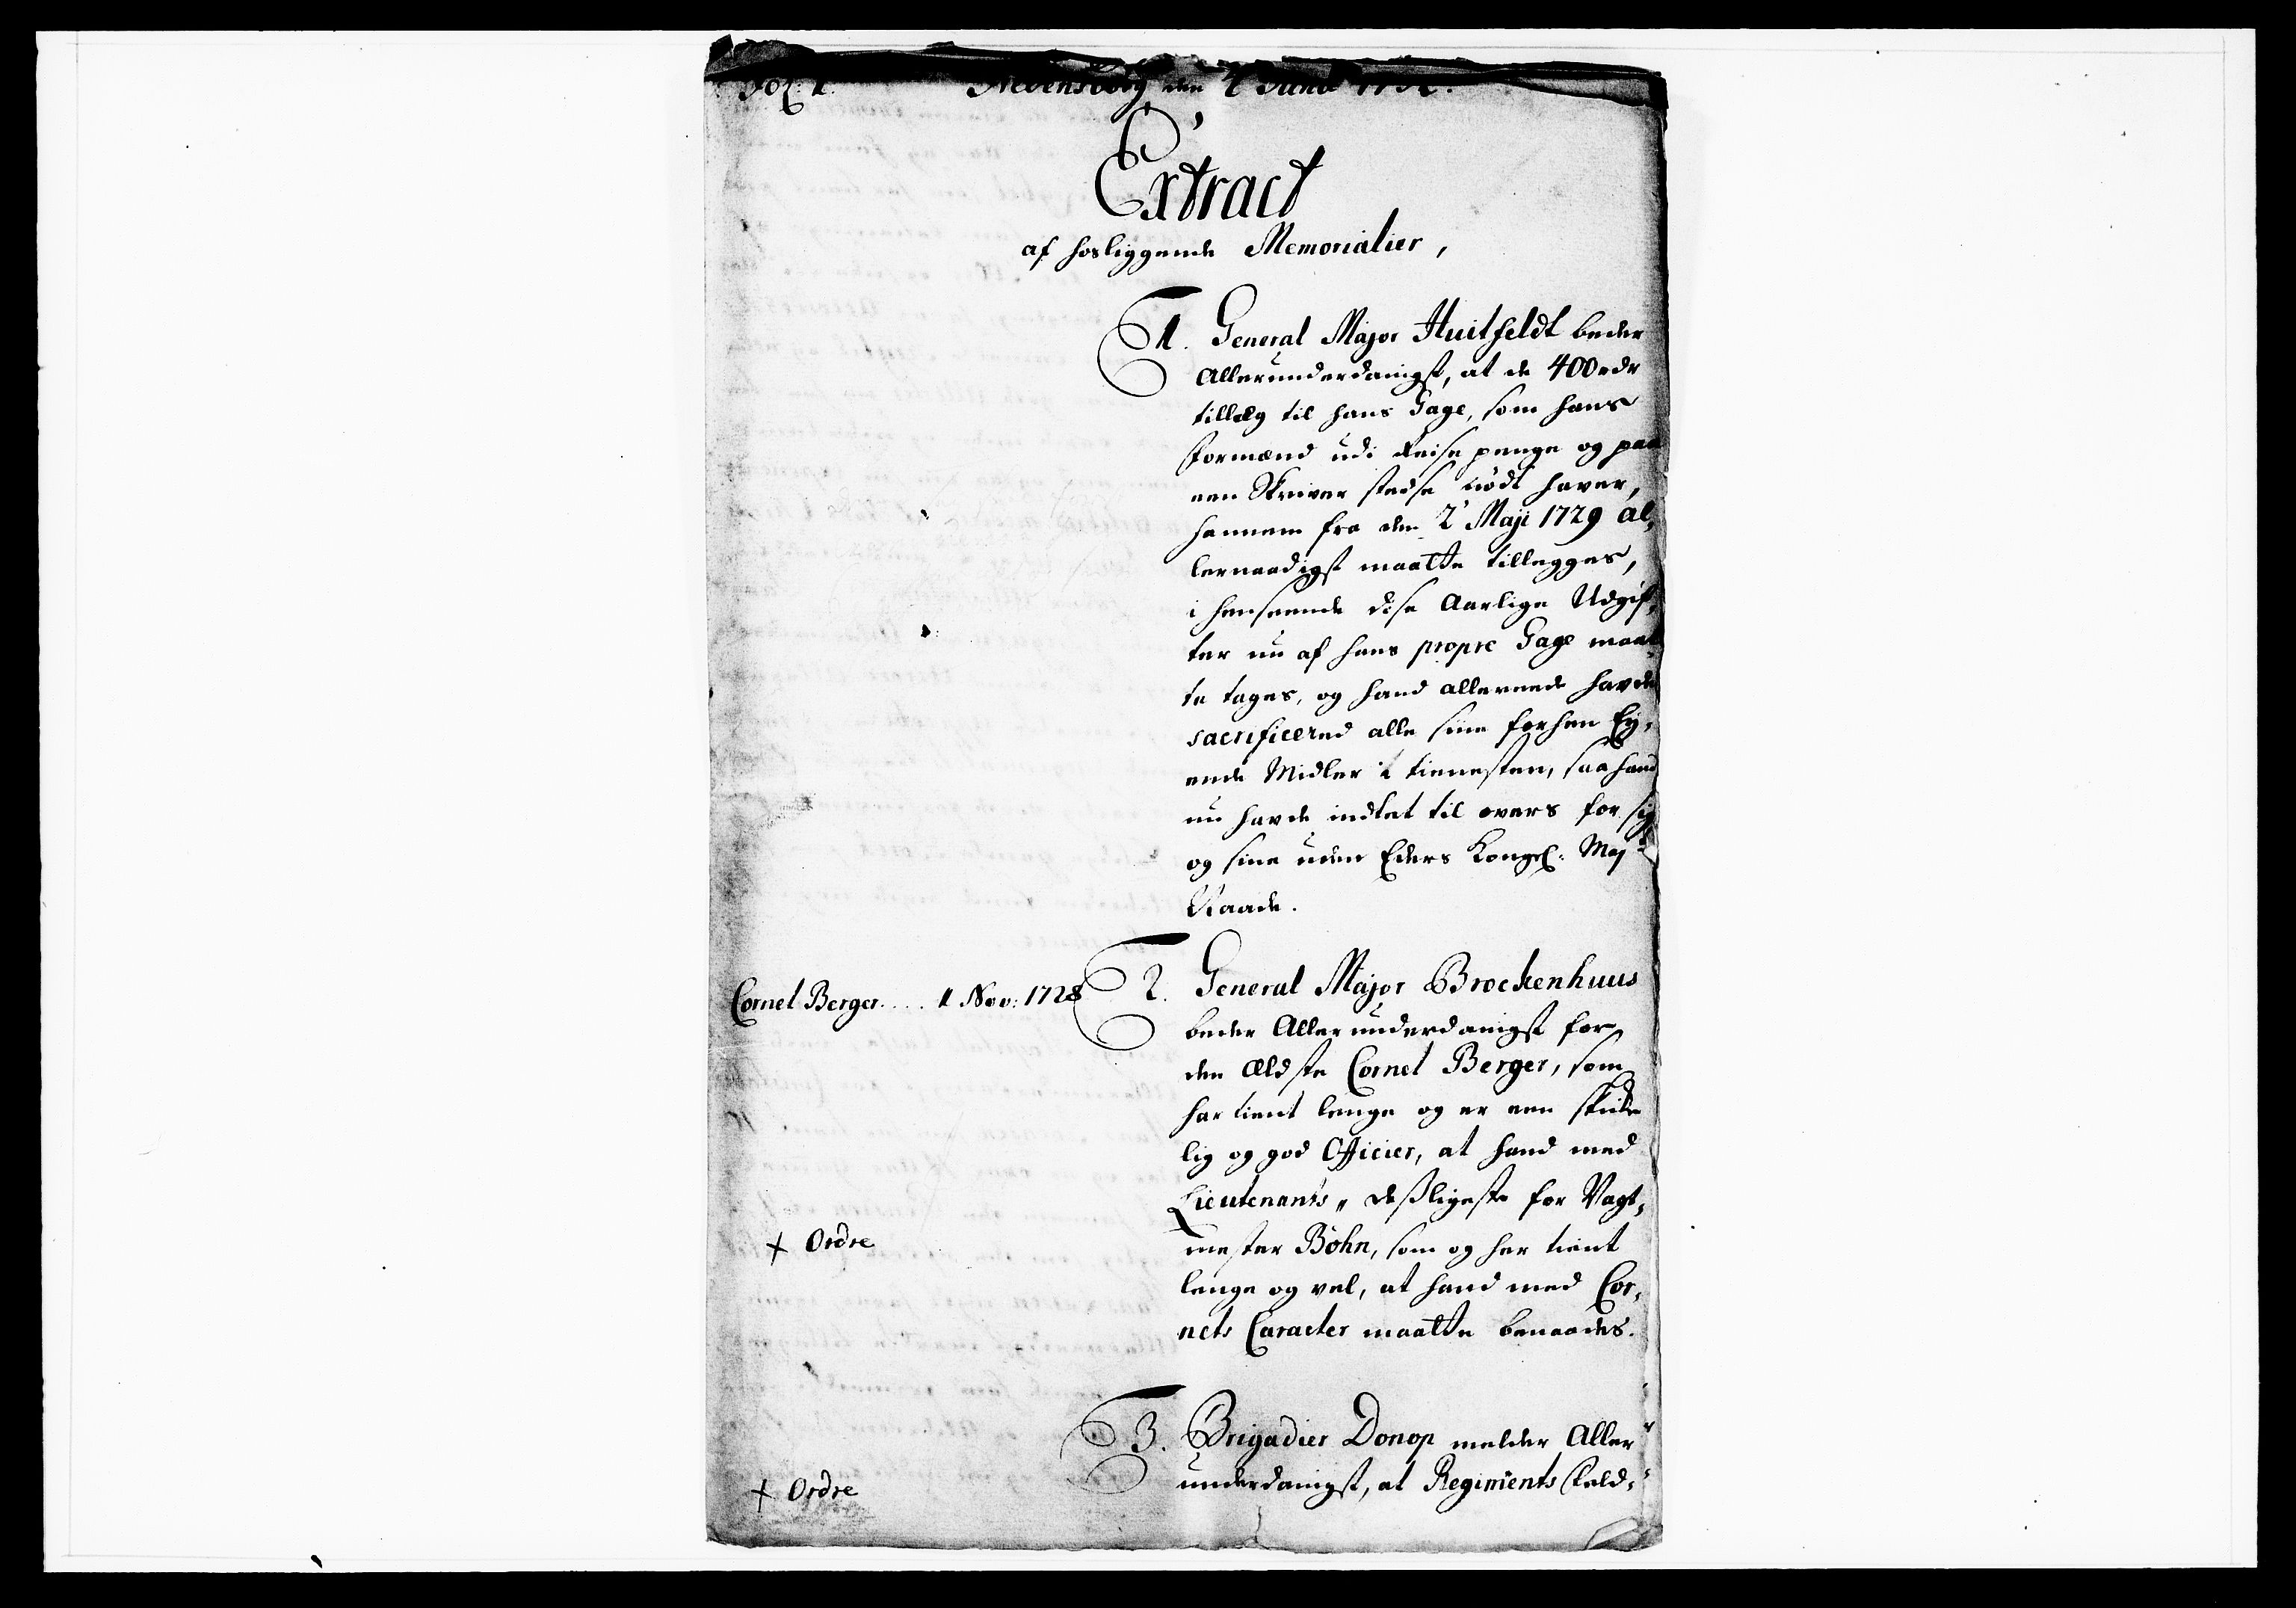 Fol: 1.
den 2 Junii
Extract
af hosliggende Memorialier,
1. General Major Huitfeldt beder
Allerunderdanigst, at de 400 rdr
tillæg til hans Gage, som hans
Formænd udi Reisepenge og paa
een Skriver stedse nødt haver,
hannem fra den 2 Maji 1729 al„
lernaadigst maatte tillegges,
i henseende disse Aarlige Udgif„
ter nu af hans propre Gage maat„
te tages, og hand allereede havde
sacrificered alle siine forhen Ey„
ende Midler i tienesten, saa hand
nu havde indtet til overs for sig
og sine uden Eders Kongel: May:ts
Naade.
Cornet Berger.... 1 Nov: 1728
2. General Major Brockenhuus
beder Allerunderdanigst for
den Eldste Cornet Berger, som
har tient lenge og er een skicke
lig og god Officier, at hand med
Lieutenants„ desligeste for Vagt„
mester Böhn, som og har tient
lenge og vel, at hand med Cor„
nets Caracter maatte benaades.
+ Ordre
3. Brigadier Donop melder Aller
underdanigst, at Regiments Feld„
+ Ordre